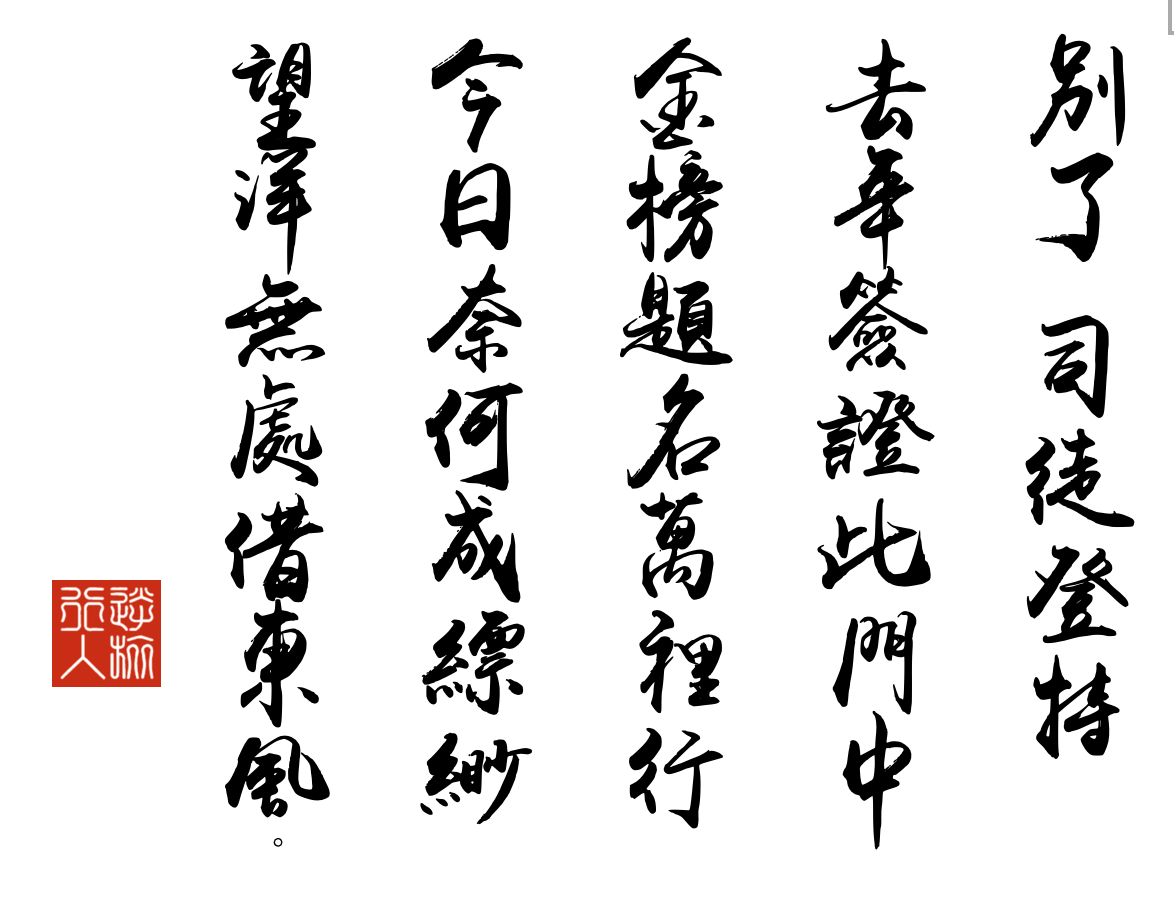 別了 司徒登特
去年簽證此門中
金榜題名萬裡行
今日奈何成縹緲
望洋無處借東風。